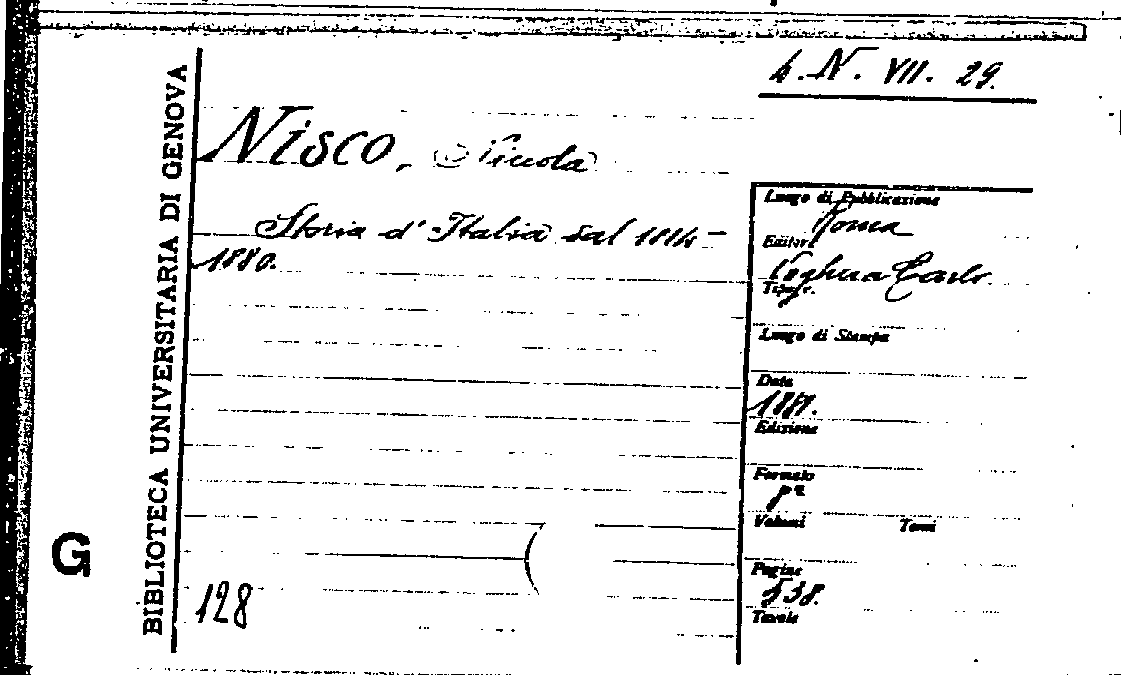 4. N. VII. 29.
BIBLIOTECA UNIVERSITARIA DI GENOVA
NISCO, Nicola
Storia d' Italia dal 1814-
1880.
Luogo di Pubblicazione
Roma
Editore
Voghera Carlo
Tipogr.
Luogo di Stampa
Data
1881.
Edizione
Formato
Volumi Tomi
Pagine
538.
Tavole
G
128